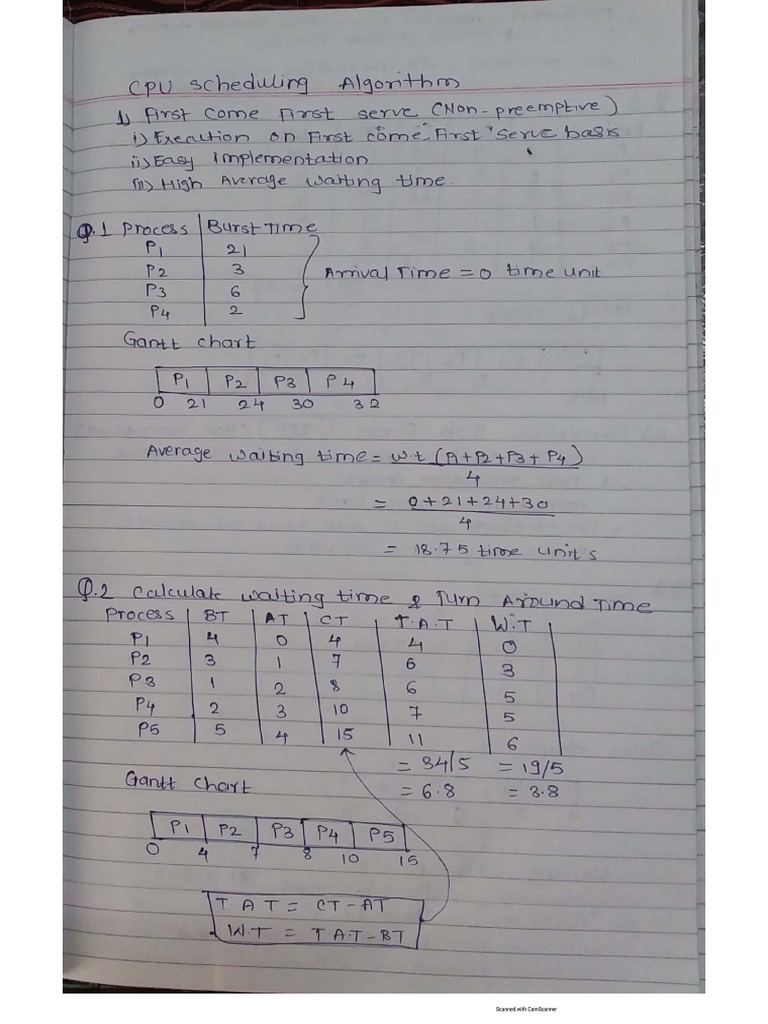 CPU Scheduling Algorithm
1) First Come First Serve (Non-preemptive)
i) Execution on First come First Serve basis
ii) Easy Implementation
iii) High Average Waiting time.
Q.1 Process Burst Time
P1 21
P2 3
P3 6
P4 2
Arrival Time = 0 time unit
Gantt chart
P1 P2 P3 P4
0 21 24 30 32
Average waiting time = Wt (P1+P2+P3+P4)
4
= 0+21+24+30
4
= 18.75 time units
Q.2 Calculate waiting time & Turn Around Time
Process BT AT CT T.A.T W.T
P1 4 0 4 4 0
P2 3 1 7 6 3
P3 1 2 8 6 5
P4 2 3 10 7 5
P5 5 4 15 11 6
= 34/5 = 19/5
= 6.8 = 3.8
Gantt chart
P1 P2 P3 P4 P5
0 4 7 8 10 15
T A T = CT-AT
W.T = T A.T-BT
Scanned with CamScanner